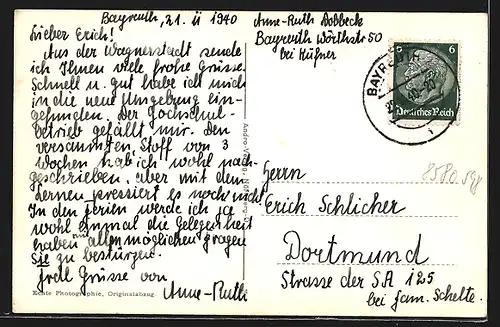 Bayreuth, 21. II 1940
Lieber Erich!
Aus der Wagnerstadt sende
ich Ihnen viele frohe Grüsse.
Schnell u. gut habe ich mich
in die neue Umgebung ein-
gefunden. Der Hochschul-
betrieb gefällt mir. Den
versäumten Stoff von 3
Wochen hab ich wohl nach-
geschrieben, aber mit dem
Lernen pressiert es noch nicht.
In den Ferien werde ich ja
wohl einmal die Gelegenheit
haben mit allen möglichen Fragen
Sie zu bestürzen.
Frdl Grüsse von
Anne-Ruth
Echte Photographie, Originalabzug.
Andro-Verlag, Nürnberg
Anne-Ruth Dobbeck
Bayreuth Wörthstr 50
bei Küfner
BAYREUTH
6
Deutsches Reich
8580
Herrn
Erich Schlicher
Dortmund
Strasse der SA 125
bei Fam. Schelte.